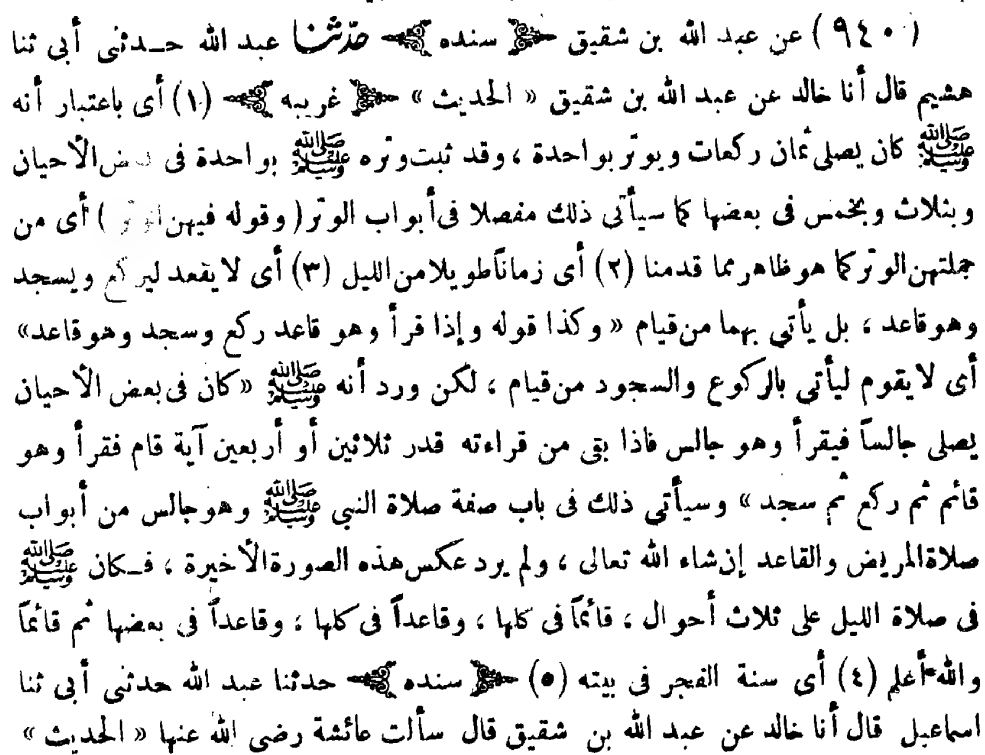 (٩٤٠) عن عبد الله بن شقيق ﴿ سنده ﴾ حدّثنا عبد الله حدثنى أبى ثنا
هشيم قال أنا خالد عن عبد الله بن شقيق « الحديث » ﴿ غريبه ﴾ (١) أى باعتبار أنه
ﷺ كان يصلى ثمان ركعات ويوتر بواحدة ، وقد ثبت وتره ﷺ بواحدة فى بعض الأحيان
وبثلاث وبخمس فى بعضها كما سيأتى ذلك مفصلا فى أبواب الوتر ( وقوله فيهن الوتر ) أى من
جملتهن الوتر كما هو ظاهر مما قدمنا (٢) أى زماناً طويلا من الليل (٣) أى لا يقعد ليركع ويسجد
وهو قاعد ؛ بل يأتي بهما من قيام « وكذا قوله وإذا قرأ وهو قاعد ركع وسجد وهو قاعد»
أى لا يقوم ليأتي بالركوع والسجود من قيام ، لكن ورد أنه ﷺ «كان فى بعض الأحيان
يصلى جالساً فيقرأ وهو جالس فاذا بقى من قراءته قدر ثلاثين أو أربعين آية قام فقرأ وهو
قائم ثم ركع ثم سجد » وسيأتي ذلك فى باب صفة صلاة النبي ﷺ وهو جالس من أبواب
صلاة المريض والقاعد إن شاء الله تعالى ، ولم يرد عكس هذه الصورة الأخيرة ، فـكان ﷺ
فى صلاة الليل على ثلاث أحوال ، قائماً فى كلها ، وقاعداً فى كلها ، وقاعداً فى بعضها ثم قائماً
والله أعلم (٤) أى سنة الفجر فى بيته (٥) ﴿ سنده ﴾ حدثنا عبد الله حدثنى أبى ثنا
اسماعيل قال أنا خالد عن عبد الله بن شقيق قال سألت عائشة رضى الله عنها « الحديث »